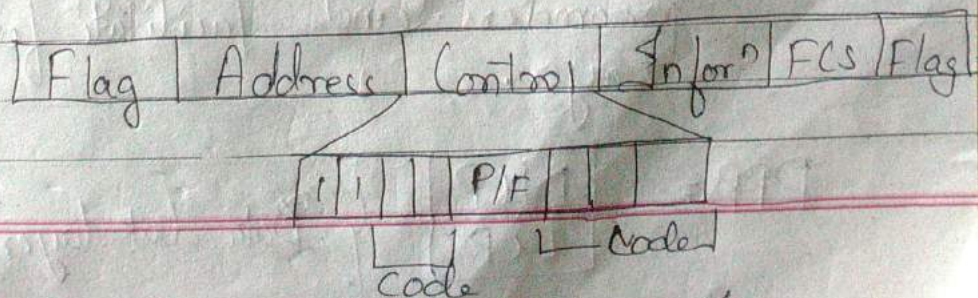 Flag Address Control Inforⁿ FCS Flag
1 1 P/F
Code
Code